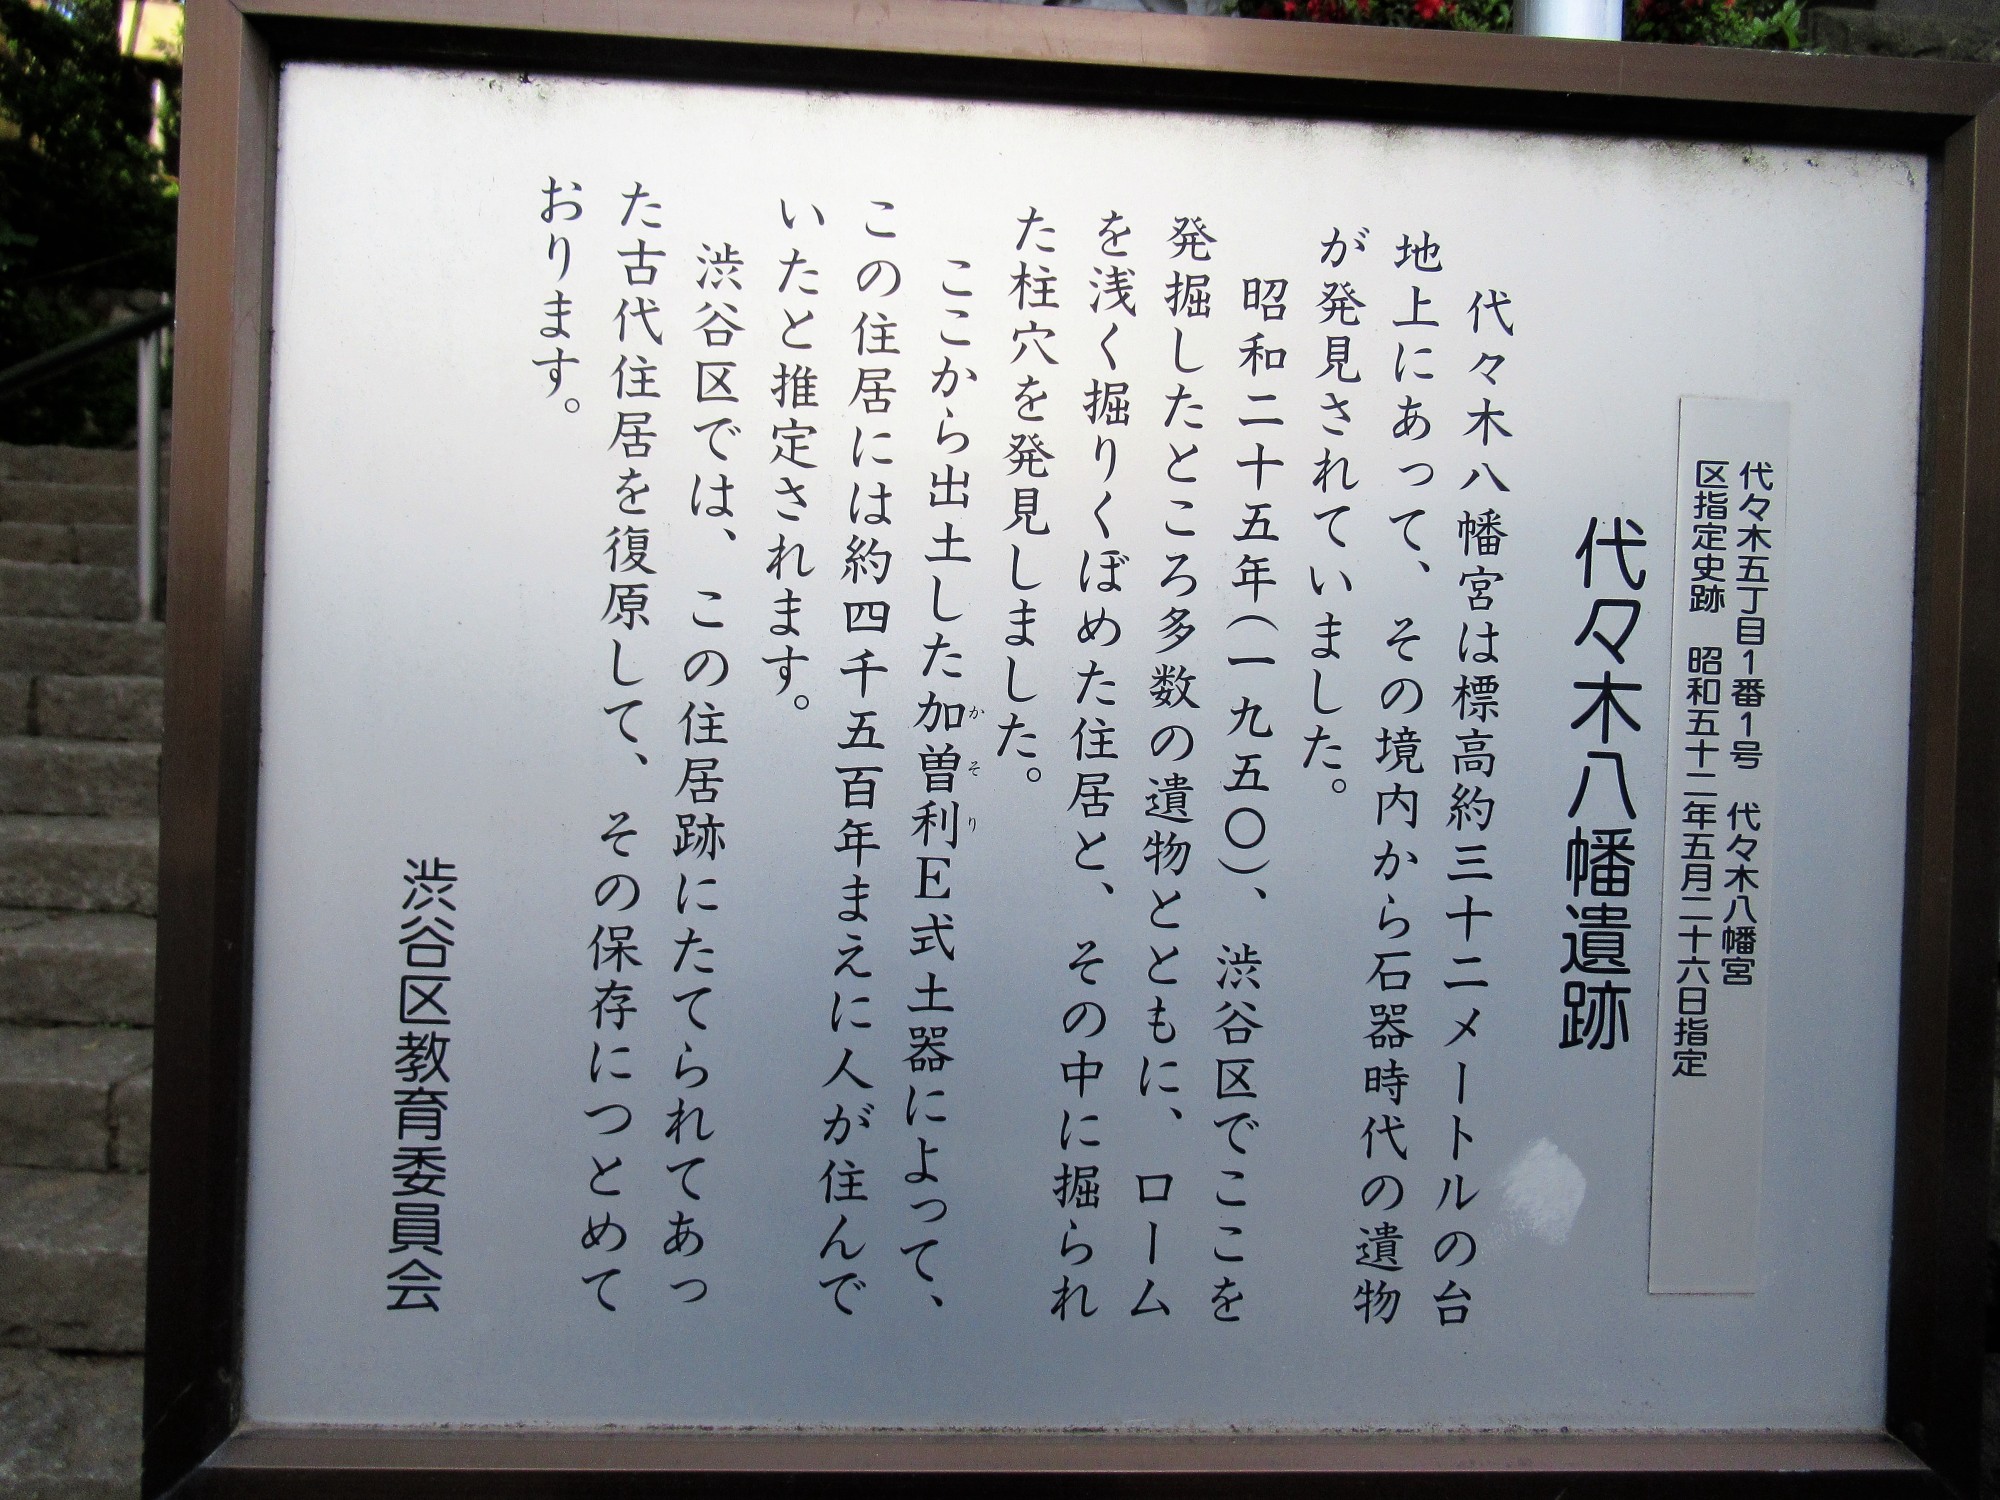 代々木五丁目1番1号　代々木八幡宮
区指定史跡　昭和五十二年五月二十六日指定
代々木八幡遺跡
代々木八幡宮は標高約三十二メートルの台
地上にあって、その境内から石器時代の遺物
が発見されていました。
昭和二十五年（一九五〇）、渋谷区でここを
発掘したところ多数の遺物とともに、ローム
を浅く掘りくぼめた住居と、その中に掘られ
た柱穴を発見しました。
ここから出土した加曽利E式土器によって、
かそり
この住居には約四千五百年まえに人が住んで
いたと推定されます。
渋谷区では、この住居跡にたてられてあっ
た古代住居を復原して、その保存につとめて
おります。
渋谷区教育委員会